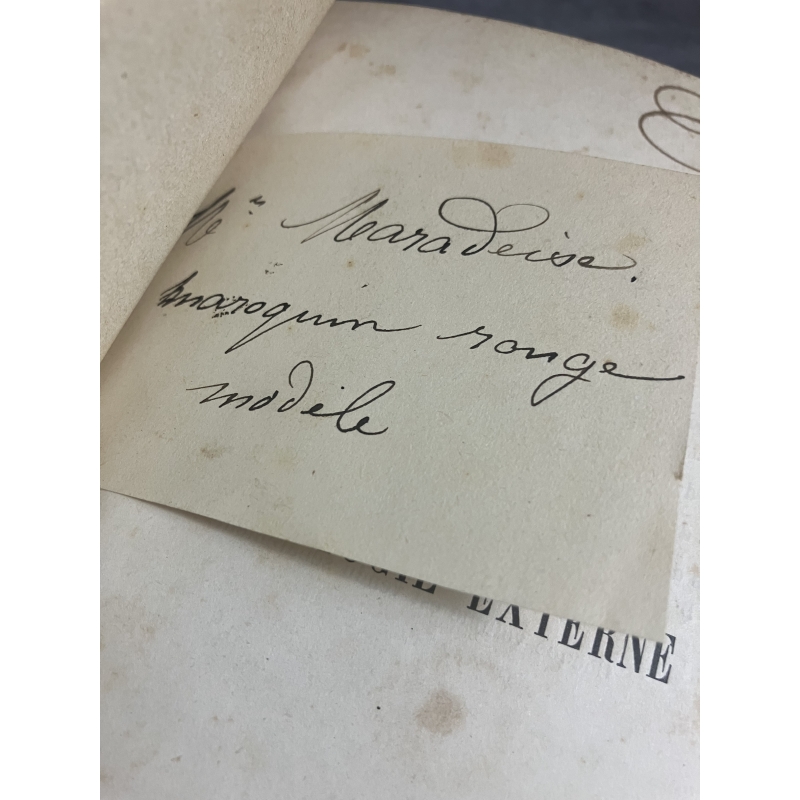 Maradeise.
maroquin rouge
modèle
EXTERNE